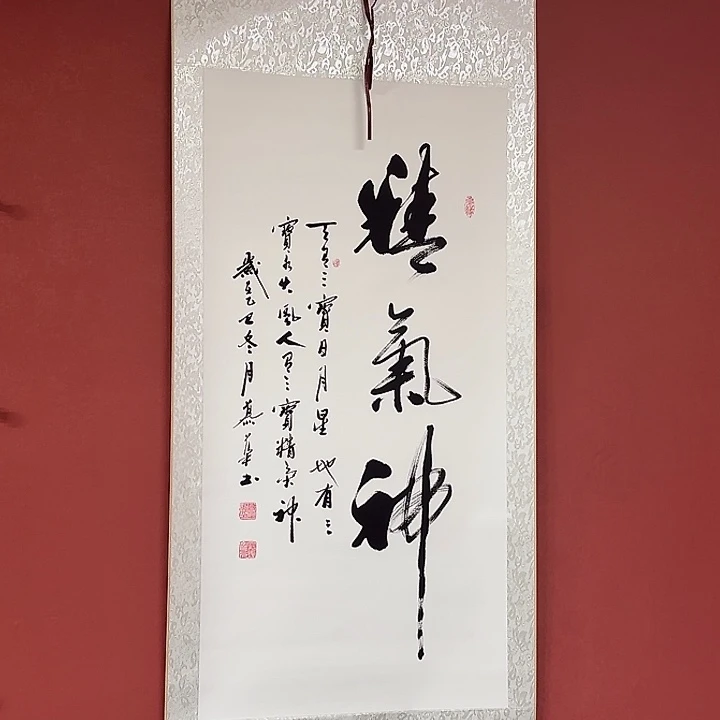 精氣神
天有三寶日月星地有三
寶水火風人有三寶精氣神
歲在己丑冬月慕華书